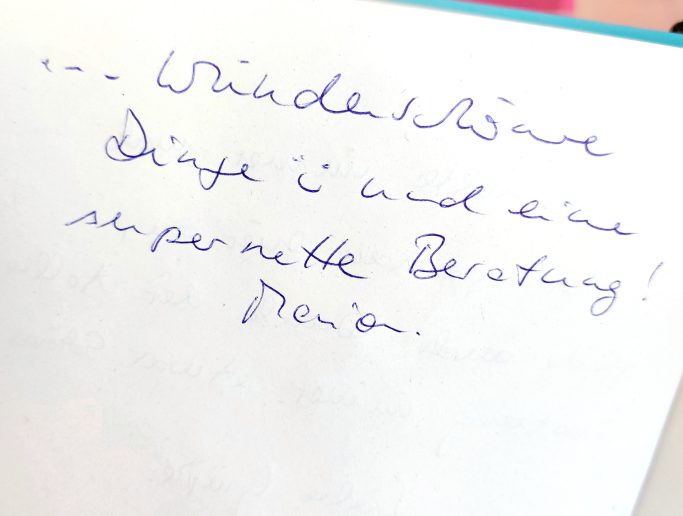 ... Wunderschöne
Dinge ü und eine
supernette Beratung!
Marion.